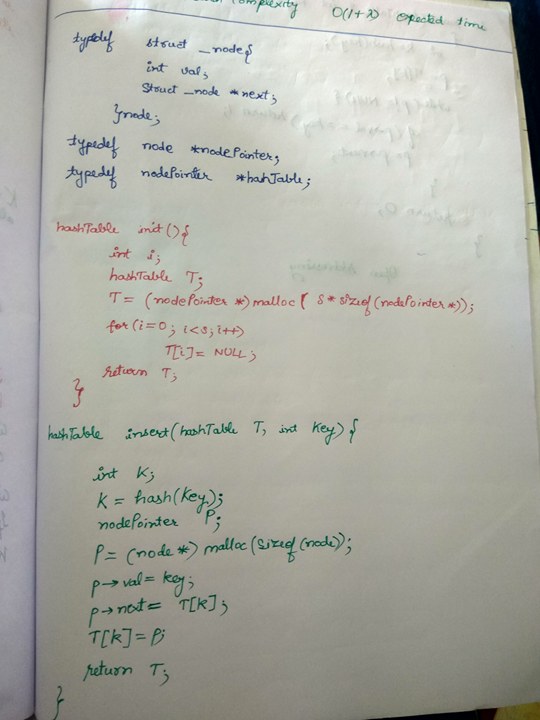 complexity O(1+λ) expected time
typedef struct _node{
int val;
struct _node *next;
}node;
typedef node *nodePointer;
typedef nodePointer *hashTable;
hashTable init(){
int i;
hashTable T;
T = (nodePointer *) malloc( s*sizeof(nodePointer *));
for(i=0; i<s; i++)
T[i]= NULL;
return T;
}
hashTable insert(hashTable T, int key){
int k;
k = hash(key);
nodePointer P;
P= (node *) malloc(sizeof(node));
p→val= key;
p→next= T[k];
T[k]=p;
return T;
}